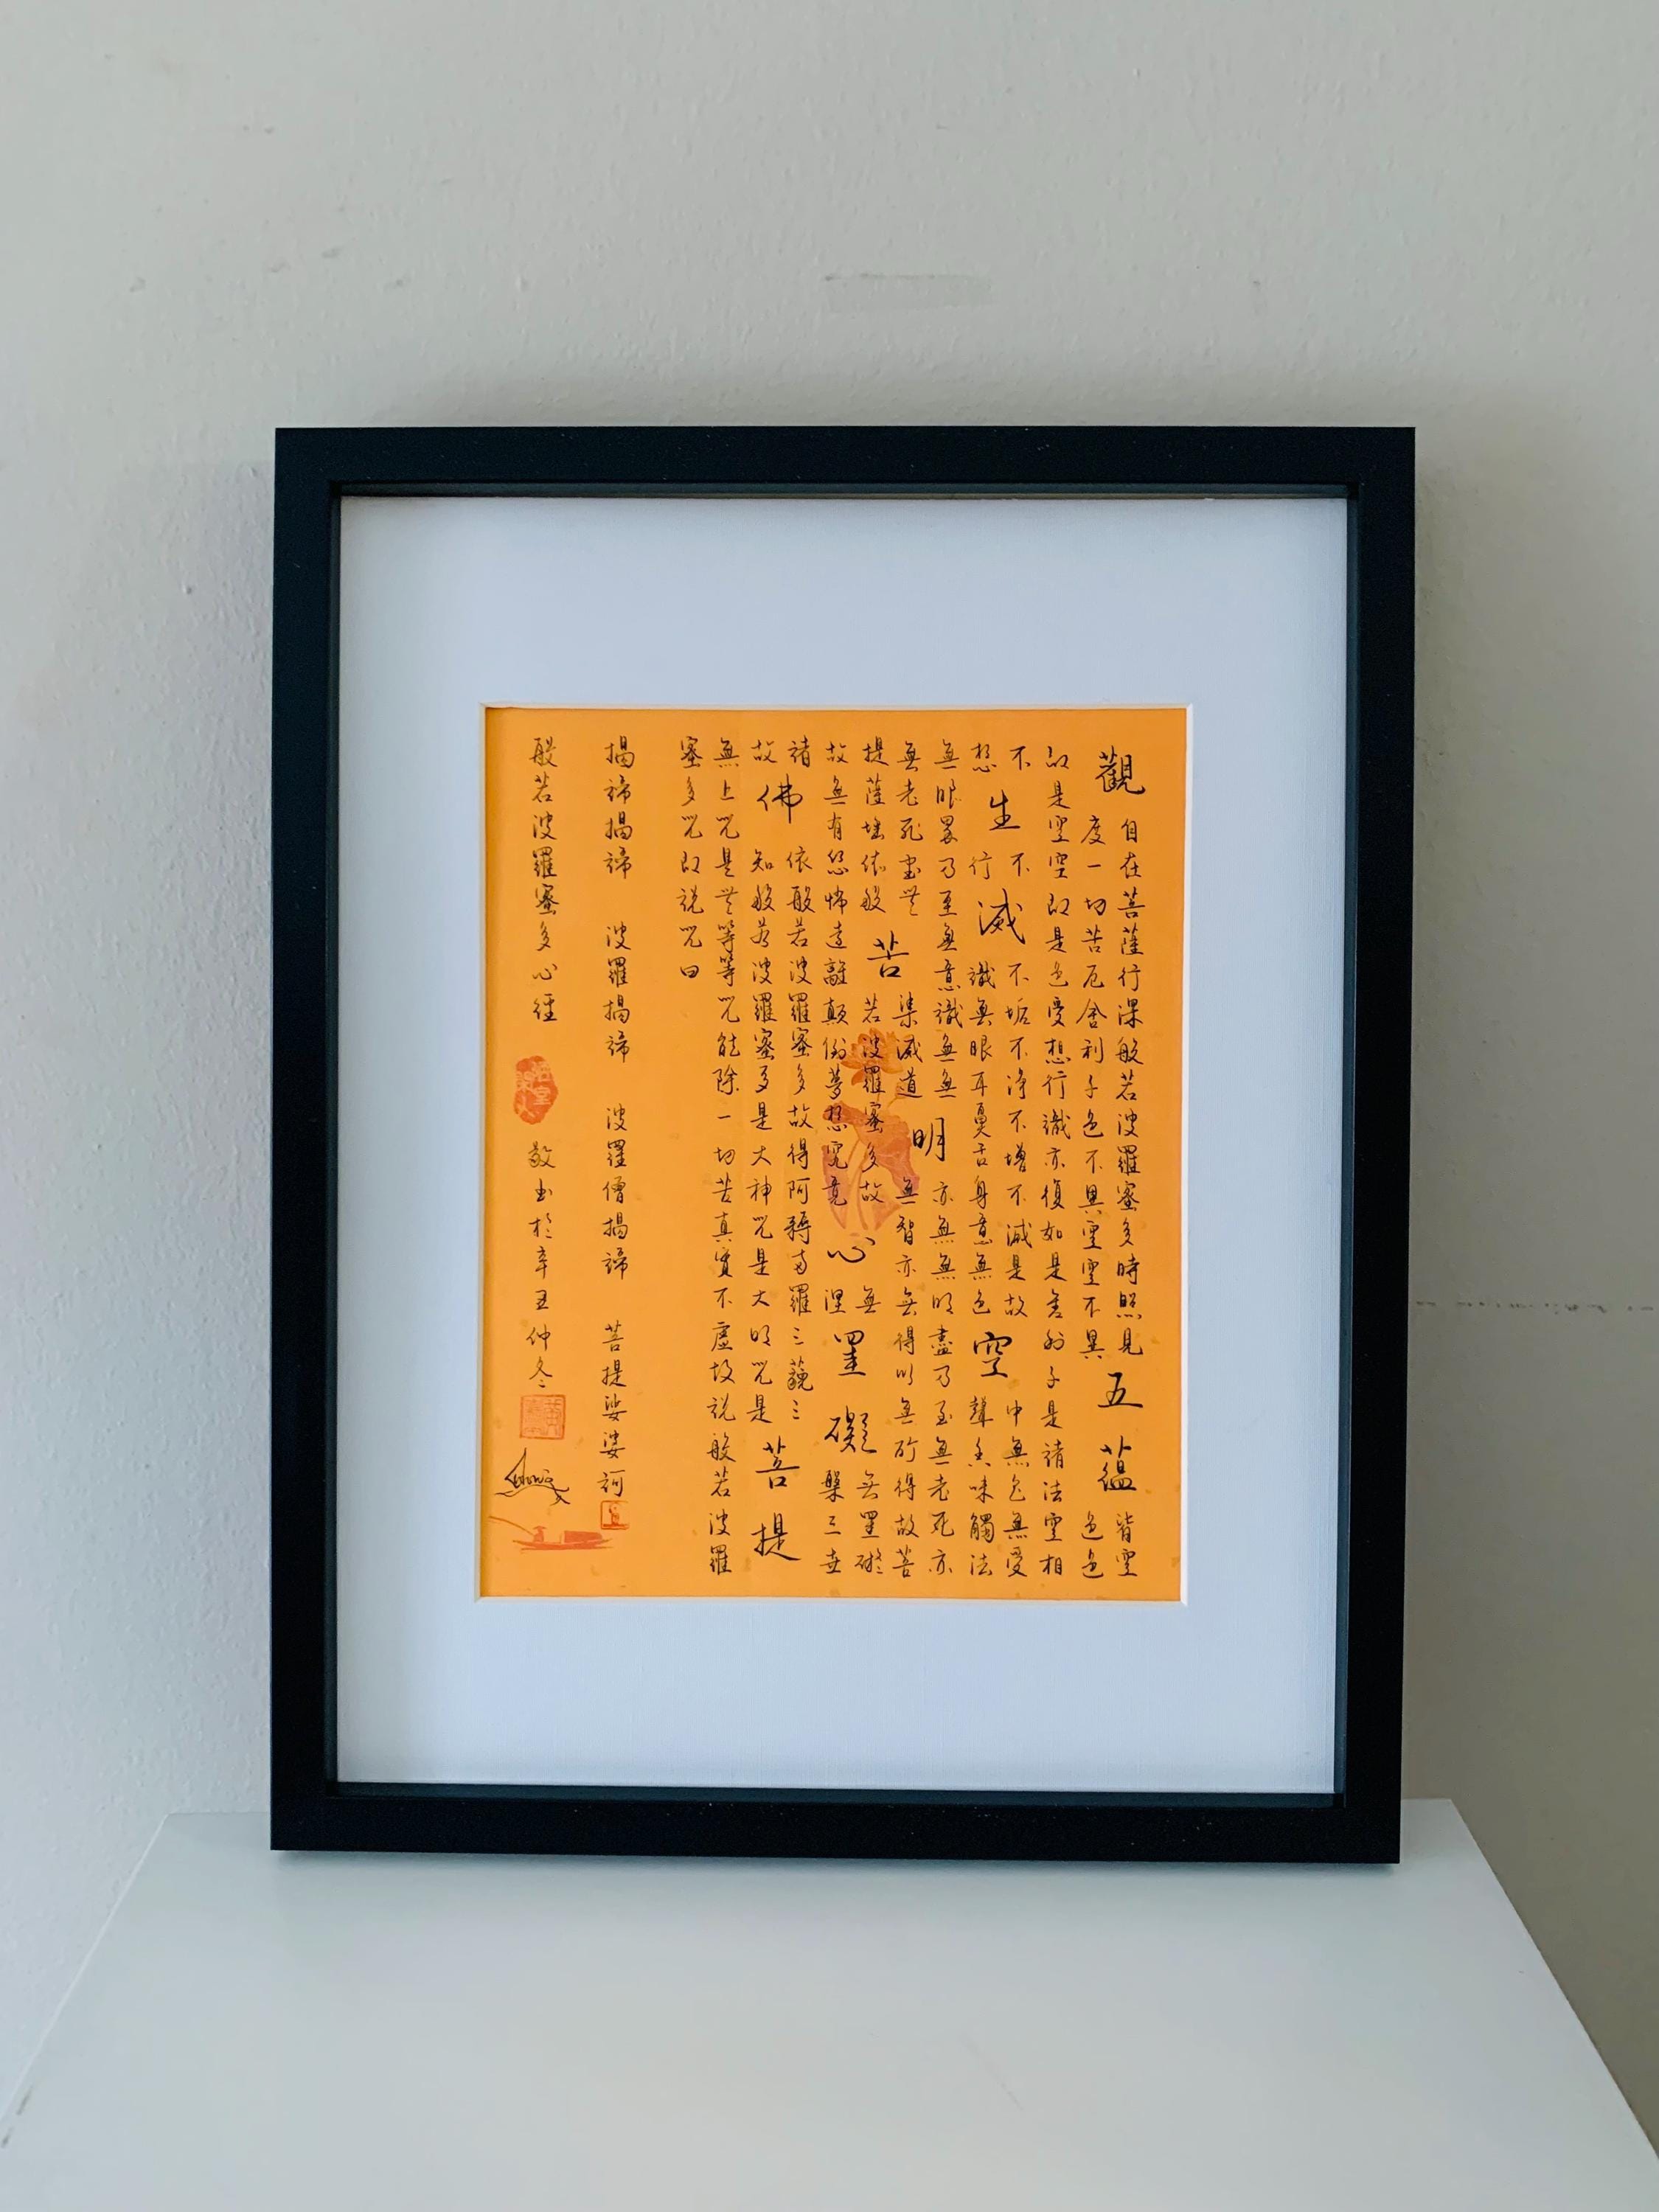 觀自在菩薩行深般若波羅蜜多時照見五蘊皆空
度一切苦厄舍利子色不異空空不異色色
即是空空即是色受想行識亦復如是舍利子是諸法空相
不生不滅不垢不淨不增不減是故空中無色無受
想行識無眼耳鼻舌身意無色聲香味觸法
無眼界乃至無意識無無明亦無無明盡乃至無老死亦
無老死盡無苦集滅道無智亦無得以無所得故菩
提薩埵依般若波羅蜜多故心無罣礙無罣礙
故無有恐怖遠離顛倒夢想究竟涅槃三世
諸佛依般若波羅蜜多故得阿耨多羅三藐三菩提
故知般若波羅蜜多是大神咒是大明咒是
無上咒是無等等咒能除一切苦真實不虛故說般若波羅
蜜多咒即說咒曰
揭諦揭諦 波羅揭諦 波羅僧揭諦 菩提娑婆訶
般若波羅蜜多心經 敬書於辛丑仲冬